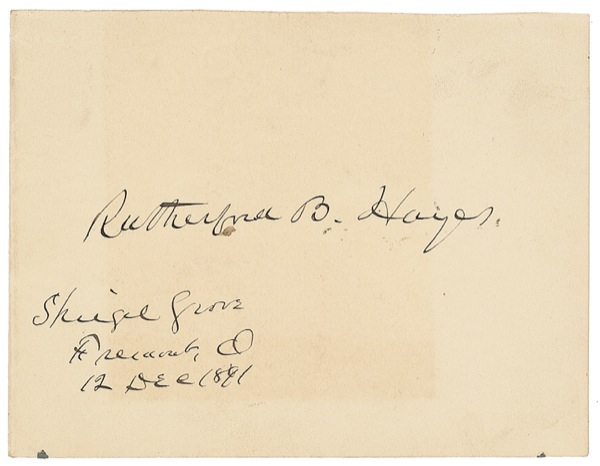 Rutherford B. Hayes.
Spiegel Grove
Fremont, O
12 Dec 1891